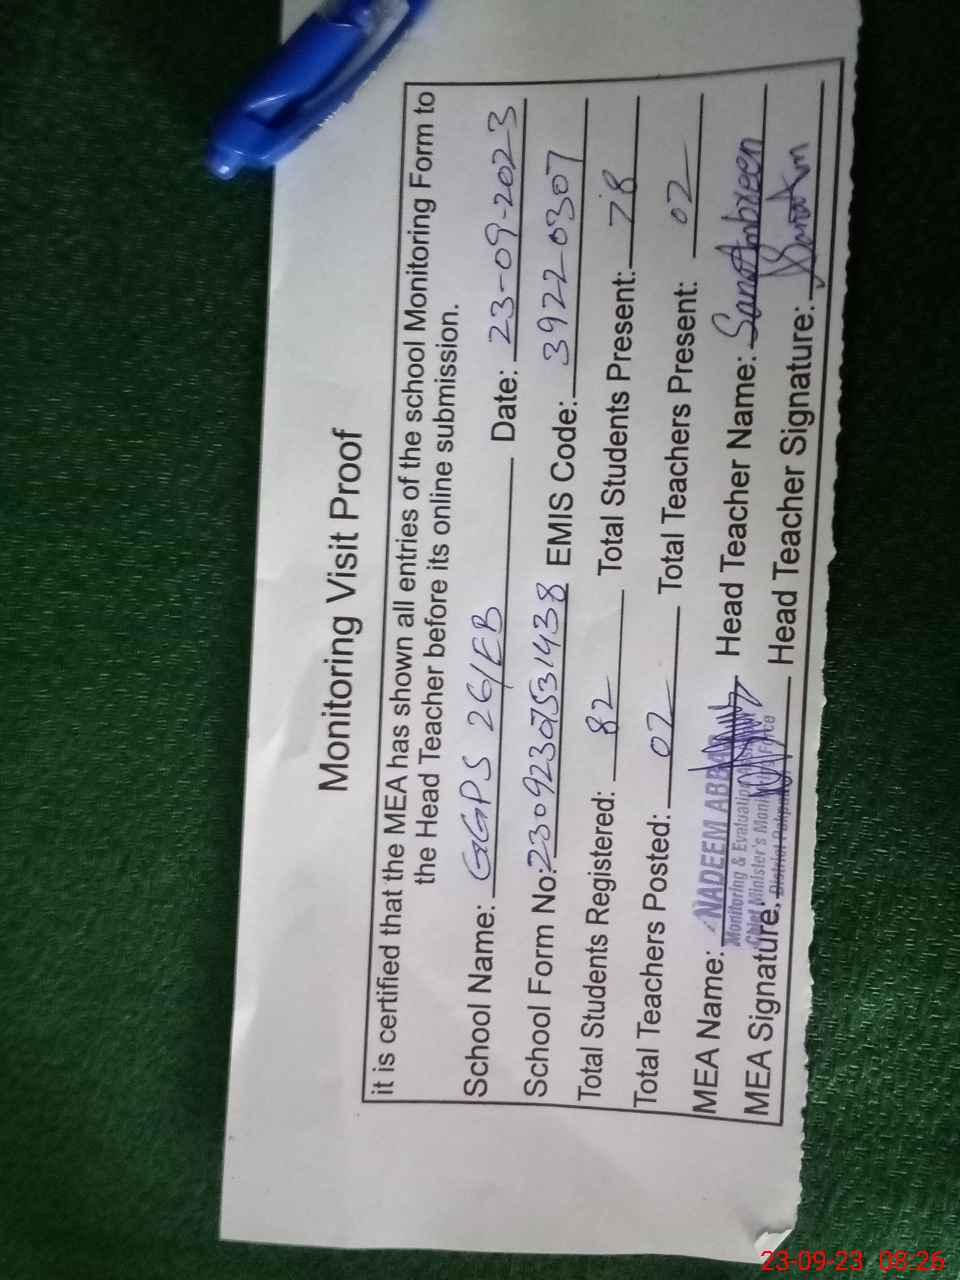 Monitoring Visit Proof
it is certified that the MEA has shown all entries of the school Monitoring Form to
the Head Teacher before its online submission.
School Name: GGPS 26/EB Date: 23-09-2023
School Form No: 23092307531438 EMIS Code: 39220307
Total Students Registered: 82 Total Students Present: 78
Total Teachers Posted: 02 Total Teachers Present: 02
MEA Name: NADEEM ABBAS Head Teacher Name: Sana Ambreen
Monitoring & Evaluation
Chief Minister's Monitoring Force
MEA Signature: District Pakpattan Head Teacher Signature:
23-09-23 08:26